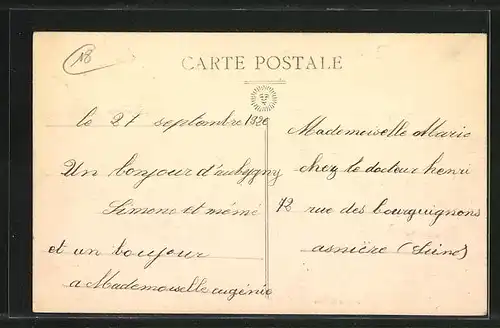 18
CARTE POSTALE
le 21 septembre 1920
Un bonjour d'aubygny
Simone et mémé
et un boujour
a Mademoiselle augénie
Mademoiselle Marie
chez le docteur henri
72 rue des bourguignons
asnière (Seine)